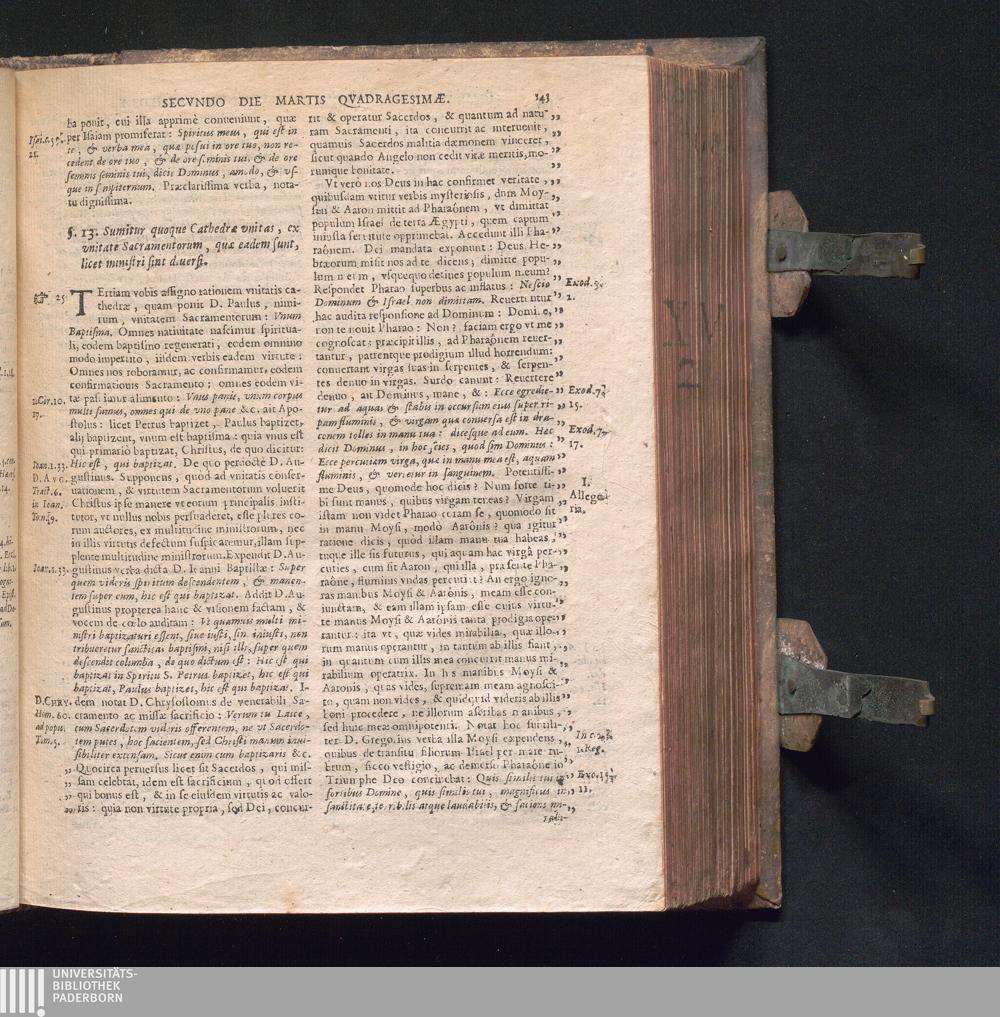 SECVNDO DIE MARTIS QVADRAGESIMÆ. 343
ba ponit, cui illa apprimè conueniunt, quæ
per Isaiam promiserat: Spiritus meus, qui est in
te, & verba mea, quæ posui in ore tuo, non re-
cedent de ore tuo, & de ore seminis tui, & de ore
seminis seminis tui, dicit Dominus, amodo, & vs-
que in sempiternum. Præclarissima verba, nota-
tu dignissima.
§. 13. Sumitur quoque Cathedræ vnitas, ex
vnitate Sacramentorum, quæ eadem sunt,
licet ministri sint diuersi.
25. TErtiam vobis assigno rationem vnitatis ca-
thedræ, quam ponit D. Paulus, nimi-
rum, vnitatem Sacramentorum: Vnum
Baptisma. Omnes natiuitate nascimur spiritua-
li, eodem baptismo regenerati, eodem omnino
modo impertito, iisdem verbis eadem virtute:
Omnes nos roboramur, ac confirmamur, eodem
confirmationis Sacramento; omnes eodem vi-
1.Cor.10. tæ pascimur alimento: Vnus panis, vnum corpus
17. multi sumus, omnes qui de vno pane &c. ait Apo-
stolus: licet Petrus baptizet, Paulus baptizet,
alij baptizent, vnum est baptisma: quia vnus est
qui primariò baptizat, Christus, de quo dicitur:
Ioan.1.33. Hic est, qui baptizat. De quo perdoctè D. Au-
D. AVG. gustinus. Supponens, quod ad vnitatis conser-
Tract.6. uationem, & virtutem Sacramentorum voluerit
in Ioan. Christus ipse manere vt eorum principalis insti-
Tom.9. tutor, vt nullus nobis persuaderet, esse plures eo-
rum auctores, ex multitudine ministrorum, nec
in illis virtutis defectum suspicaremur, illam sup-
plente multitudine ministrorum. Expendit D. Au-
Ioan.1.33. gustinus verba dicta D. Ioanni Baptistæ: Super
quem videris spiritum descendentem, & manen-
tem super eum, hic est qui baptizat. Addit D. Au-
gustinus propterea hanc & visionem factam, &
vocem de cœlo auditam: Vt quamuis multi mi-
nistri baptizaturi essent, siue iusti, siue iniusti, non
tribueretur sanctitas baptismi, nisi illi, super quem
descendit columba, de quo dictum est: Hic est qui
baptizat in Spiritu S. Petrus baptizet, hic est qui
baptizat, Paulus baptizet, hic est qui baptizat. I-
D.CHRY. dem notat D. Chrysostomus de venerabili Sa-
Hom. 60. cramento ac missæ sacrificio: Verum tu Laice,
ad popu. cum Sacerdotem videris offerentem, ne vt Sacerdo-
Tom.5. tem putes, hoc facientem, sed Christi manum inui-
sibiliter extensam. Sicut enim cum baptizaris &c.
„ Quocirca peruersus licet sit Sacerdos, qui mis-
„ sam celebrat, idem est sacrificium, quod offert
„ qui bonus est, & in se eiusdem virtutis ac valo-
„ ris: quia non virtute propria, sed Dei, concur-
rit & operatur Sacerdos, & quantum ad natu-„
ram Sacramenti, ita concurrit ac interuenit, „
quamuis Sacerdos malitia dæmonem vinceret, „
sicut quando Angelo non cedit vitæ meritis, mo-„
rumque bonitate.
Vt verò nos Deus in hac confirmet veritate, „
quibusdam vtitur verbis mysteriosis, dum Moy-„
sen & Aaron mittit ad Pharaônem, vt dimittat „
populum Israel de terra Ægypti, quem captum „
iniusta seruitute opprimebat. Accedunt illi Pha-„
raônem. Dei mandata exponunt: Deus He-„
bræorum misit nos ad te dicens; dimitte popu-„
lum meum, vsquequo detines populum meum? „
Respondet Pharao superbus ac inflatus: Nescio Exod.5.
Dominum & Israel non dimittam. Reuertuntur 2.
hac audita responsione ad Dominum: Domine, „
non te nouit Pharao: Non? faciam ergo vt me „
cognoscat: præcipit illis, ad Pharaônem reuer-„
tantur, patrentque prodigium illud horrendum: „
conuertant virgas suas in serpentes, & serpen-„
tes denuo in virgas. Surdo canunt: Reuertere „
denuo, ait Dominus, mane, &: Ecce egredie- Exod.7.
tur ad aquas & stabis in occursum eius super ri- 15.
pam fluminis, & virgam quæ conuersa est in dra-
conem tolles in manu tua: dicesque ad eum. Hæc Exod.7.
dicit Dominus, in hoc scies, quod sim Dominus: 17.
Ecce percutiam virga, quæ in manu mea est, aquam
fluminis, & vertetur in sanguinem. Potentissi-
me Deus, quomodo hoc dicis? Num forte ti- I.
bi sunt manus, quibus virgam teneas? Virgam Allego-
istam non videt Pharao coram se, quomodo sit ria.
in manu Moysi, modò Aarônis? qua igitur
ratione dicis, quòd illam manu tua habeas,
tuque ille sis futurus, qui aquam hac virgâ per-„
cuties, cum sit Aaron, qui illa, præsente Pha-„
raône, fluminis vndas percutit? An ergo igno-„
ras manibus Moysi & Aarônis, meam esse con-„
iunctam, & eam illam ipsam esse cuius virtu-„
te manus Moysi & Aarônis tanta prodigia ope-„
rantur: ita vt, quæ vides mirabilia, quæ illo-„
rum manus operantur, in tantum ab illis fiant, „
in quantum cum illis mea concurrit manus mi-„
rabilium operatrix. In his manibus Moysi & „
Aaronis, quas vides, supremam meam agnosci-„
to, quam non vides, & quidquid videris ab illis „
boni procedere, ne illorum ascribas manibus, „
sed huic meæ omnipotenti. Notat hoc subtili-„
ter D. Gregorius verba illa Moysi expendens, In c.
quibus de transitu filiorum Israel per mare ru- 1. Reg.
brum, sicco vestigio, ac demerso Pharaône io
Triumphe Deo concinebat: Quis similis tui in Exo.15.
fortibus Domine, quis similis tui, magnificus in 11.
sanctitate, terribilis atque laudabilis, & faciens mi-
rabi-
UNIVERSITÄTS-
BIBLIOTHEK
PADERBORN